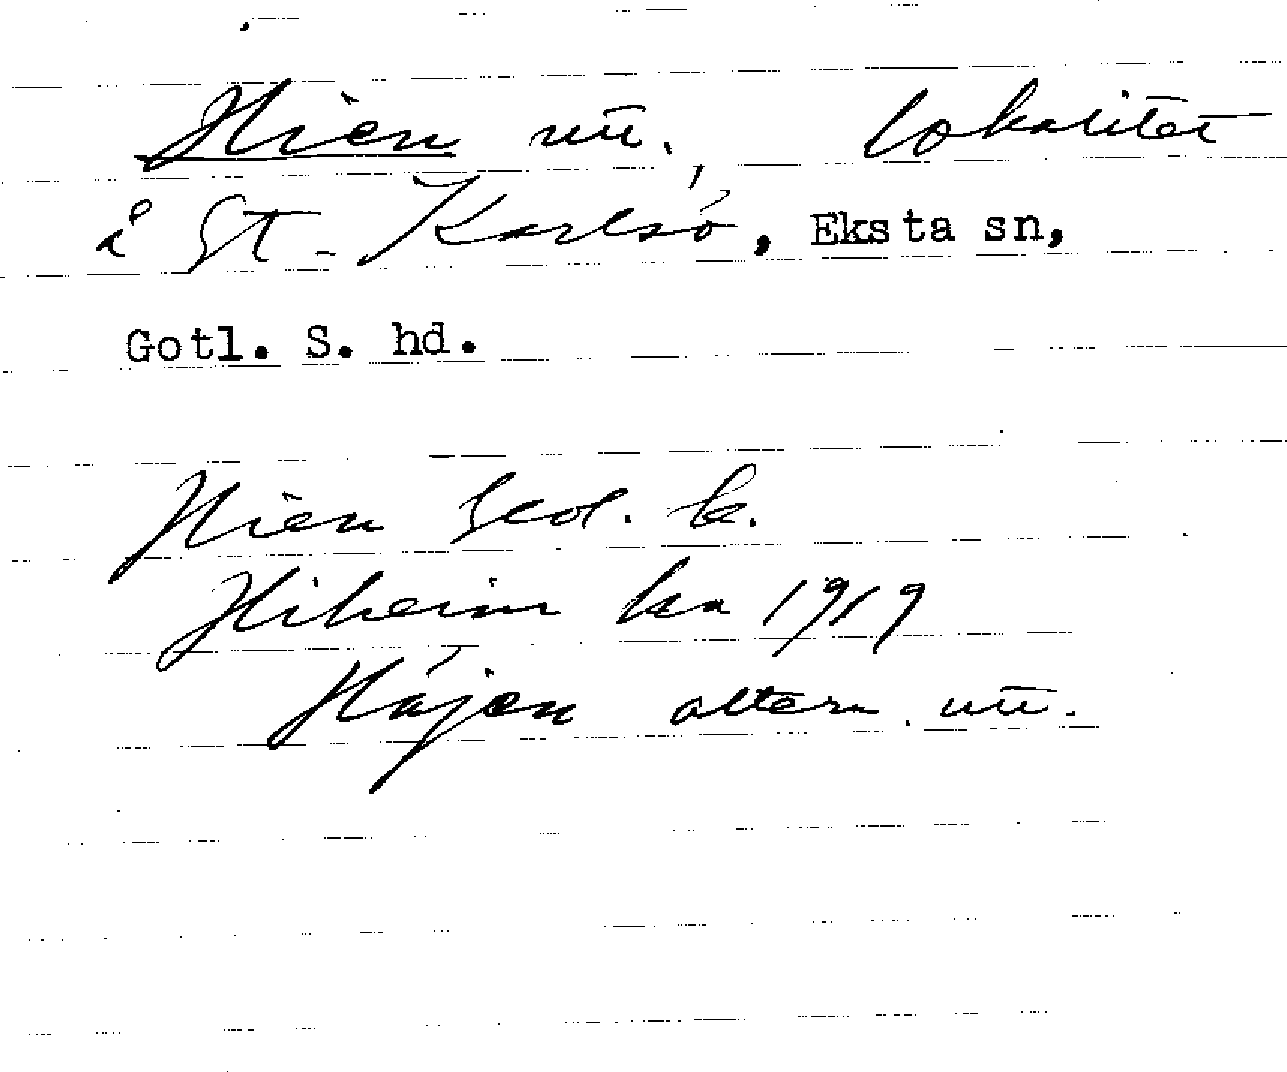 Hien utt., lokalitet
å St. Karlsö, Eksta sn,
Gotl. S. hd.
Hien Geol. k.
Hiheim ka 1919
Häjen altern. utt.